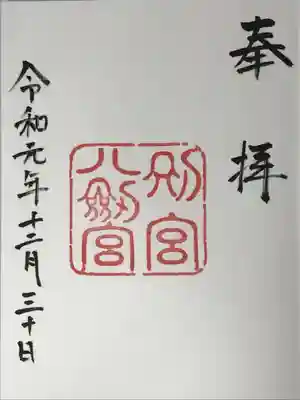 奉拝
別宮
八剱宮
令和元年十二月三十日